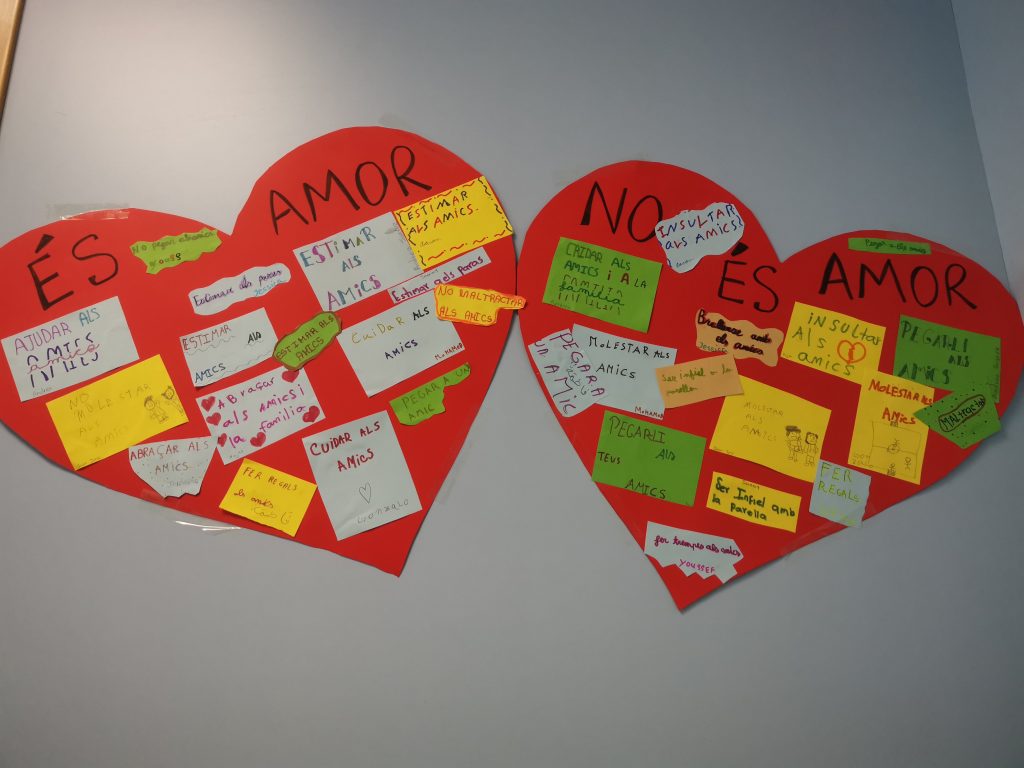 ÉS AMOR
No pegar als amics
Estimar als pares
Jessica
ESTIMAR
ALS
AMICS
ESTIMAR
ALS AMICS.
Estimar a els Paras
NO MALTRACTAR
ALS AMICS
AJUDAR ALS
AMICS
ESTIMAR ALS
AMICS
ESTIMAR ALS
AMICS
CUIDAR ALS
AMICS
MOHAMED
NO
MOLESTAR
ALS
AMICS
ABraçar
als AMICS i
la familia
PEGAR A UN
AMIC
ABRAÇAR ALS
AMICS
FER REGALS
CUIDAR ALS
AMICS
GONZALO
NO ÉS AMOR
INSULTAR
ALS AMICS!
Pegar a els amics
CUIDAR ALS
AMICS i A LA
familia
MOLESTAR ALS
AMICS
MOHAMED
PEGAR A
UN AMIC
Jessica
Ser infiel a la
parella
INSULTAR
Als
amics
PEGARLI
ALS
AMICS
MOLESTAR
ALS
AMICS
MOLESTAR ALS
AMICS
MALTRACTAR
PEGARLI ALS
TEUS
AMICS
Ser Infiel amb
la Parella
FER
REGALS
fer trampes als amics
YOUSSEF